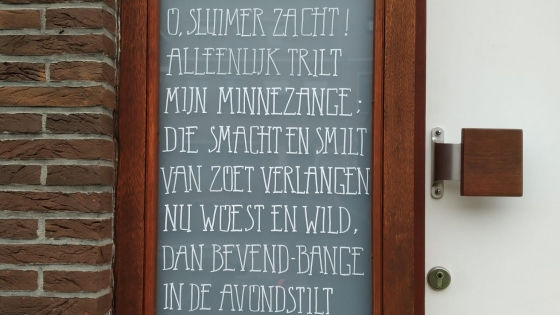 O, SLUIMER ZACHT!
ALLEENLIJK TRILT
MIJN MINNEZANGE;
DIE SMACHT EN SMILT
VAN ZOET VERLANGEN
NU WOEST EN WILD,
DAN BEVEND-BANGE
IN DE AVONDSTILT